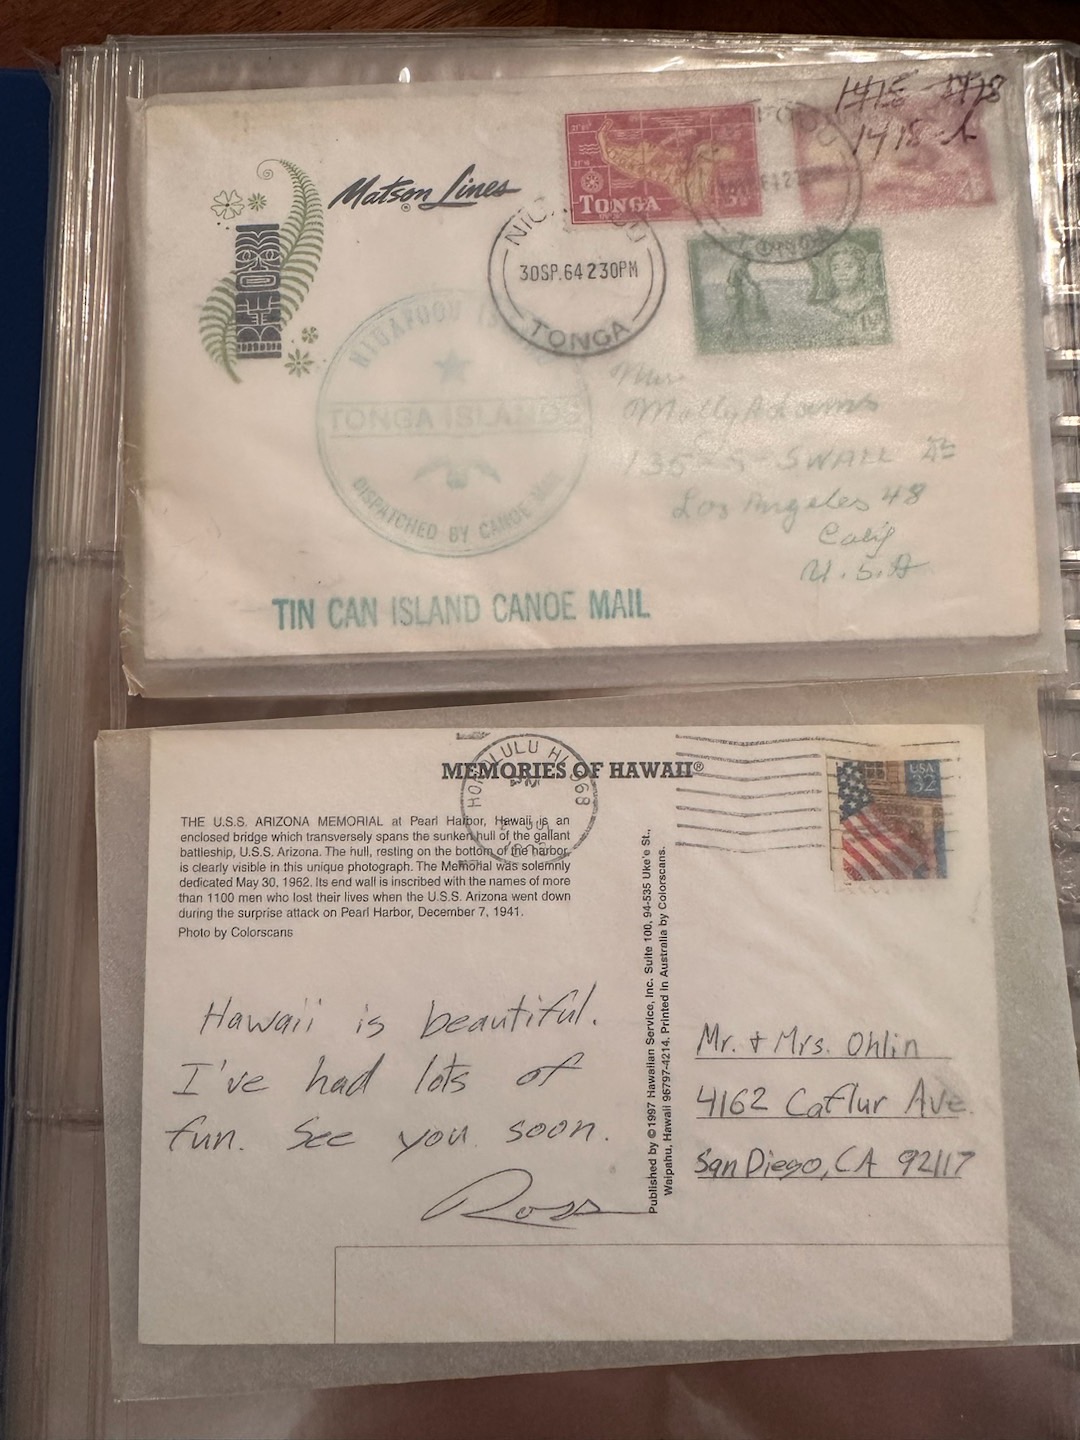 1418
1418
Matson Lines
®
TONGA
30SP.64 230PM
TONGA
NIUAFOOU
TONGA ISLANDS
DISPATCHED BY CANOE MAIL
Molly Adams
Los Angeles 48
Calif
U.S.A
TIN CAN ISLAND CANOE MAIL
HONOLULU HI 968
MEMORIES OF HAWAII®
USA
32
THE U.S.S. ARIZONA MEMORIAL at Pearl Harbor, Hawaii is an
enclosed bridge which transversely spans the sunken hull of the gallant
battleship, U.S.S. Arizona. The hull, resting on the bottom of the harbor,
is clearly visible in this unique photograph. The Memorial was solemnly
dedicated May 30, 1962. Its end wall is inscribed with the names of more
than 1100 men who lost their lives when the U.S.S. Arizona went down
during the surprise attack on Pearl Harbor, December 7, 1941.
Photo by Colorscans
Hawaii is beautiful.
I've had lots of
fun. See you soon.
Ross
Published by ©1997 Hawaiian Service, Inc. Suite 100, 94-535 Uke'e St.,
Waipahu, Hawaii 96797-4214. Printed in Australia by Colorscans.
Mr. + Mrs. Ohlin
4162 Caflur Ave.
San Diego, CA 92117